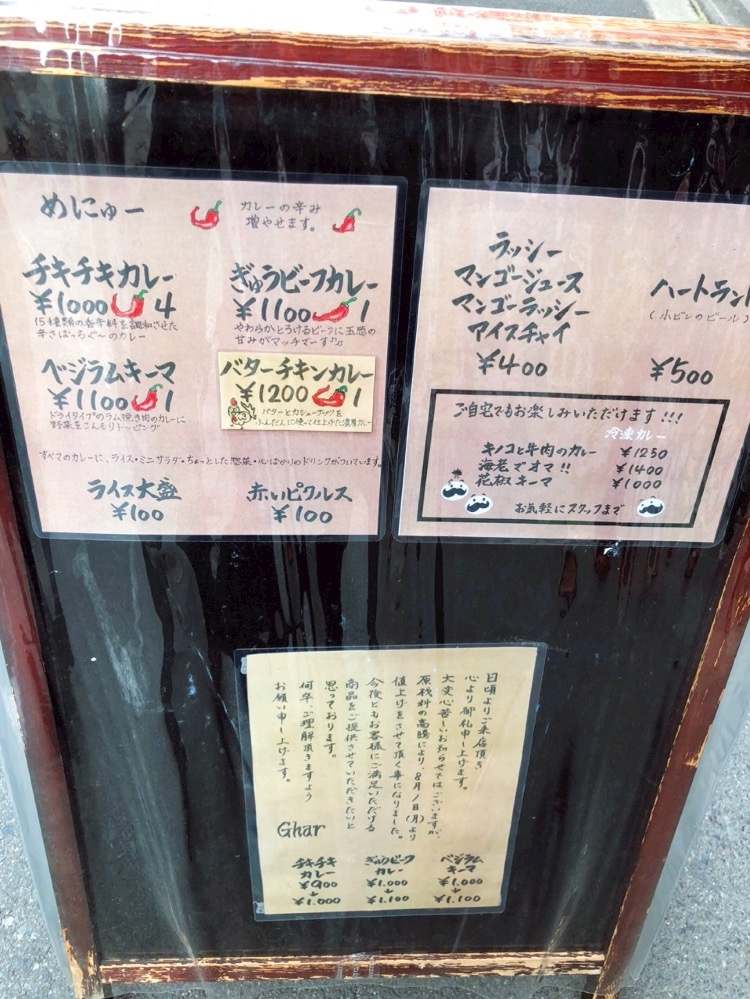 めにゅー
カレーの辛み
増やせます。
チキチキカレー
¥1000 4
15種類の香辛料を調和させた
辛さばっちぐ〜のカレー
ぎゅうビーフカレー
¥1100 1
やわらかとろけるビーフに玉葱の
甘みがマッチでーす♪♪
ベジラムキーマ
¥1100 1
ドライタイプのラム挽き肉のカレーに
野菜をこんもりトッピング
バターチキンカレー
¥1200 1
バターとカシューナッツを
ふんだんに使って仕上げた濃厚カレー
すべてのカレーに、ライス・ミニサラダ・ちょっとした惣菜・心ばかりのドリンクがついています。
ライス大盛
¥100
赤いピクルス
¥100
ラッシー
マンゴージュース
マンゴーラッシー
アイスチャイ
¥400
ハートラン
(小ビンのビール)
¥500
ご自宅でもお楽しみいただけます!!!
冷凍カレー
キノコと牛肉のカレー ¥1250
海老でオマ!! ¥1400
花椒キーマ ¥1000
お気軽にスタッフまで
日頃よりご来店頂き
心より御礼申し上げます。
大変心苦しいお知らせではございますが、
原材料の高騰により、8月1日(月)より
値上げをさせて頂く事になりました。
今後ともお客様にご満足いただける
商品をご提供させていただきたいと
思っております。
何卒、ご理解頂きますよう
お願い申し上げます。
Ghar
チキチキ
カレー
¥900
↓
¥1.000
ぎゅうビーフ
カレー
¥1.000
↓
¥1.100
ベジラム
キーマ
¥1.000
↓
¥1.100